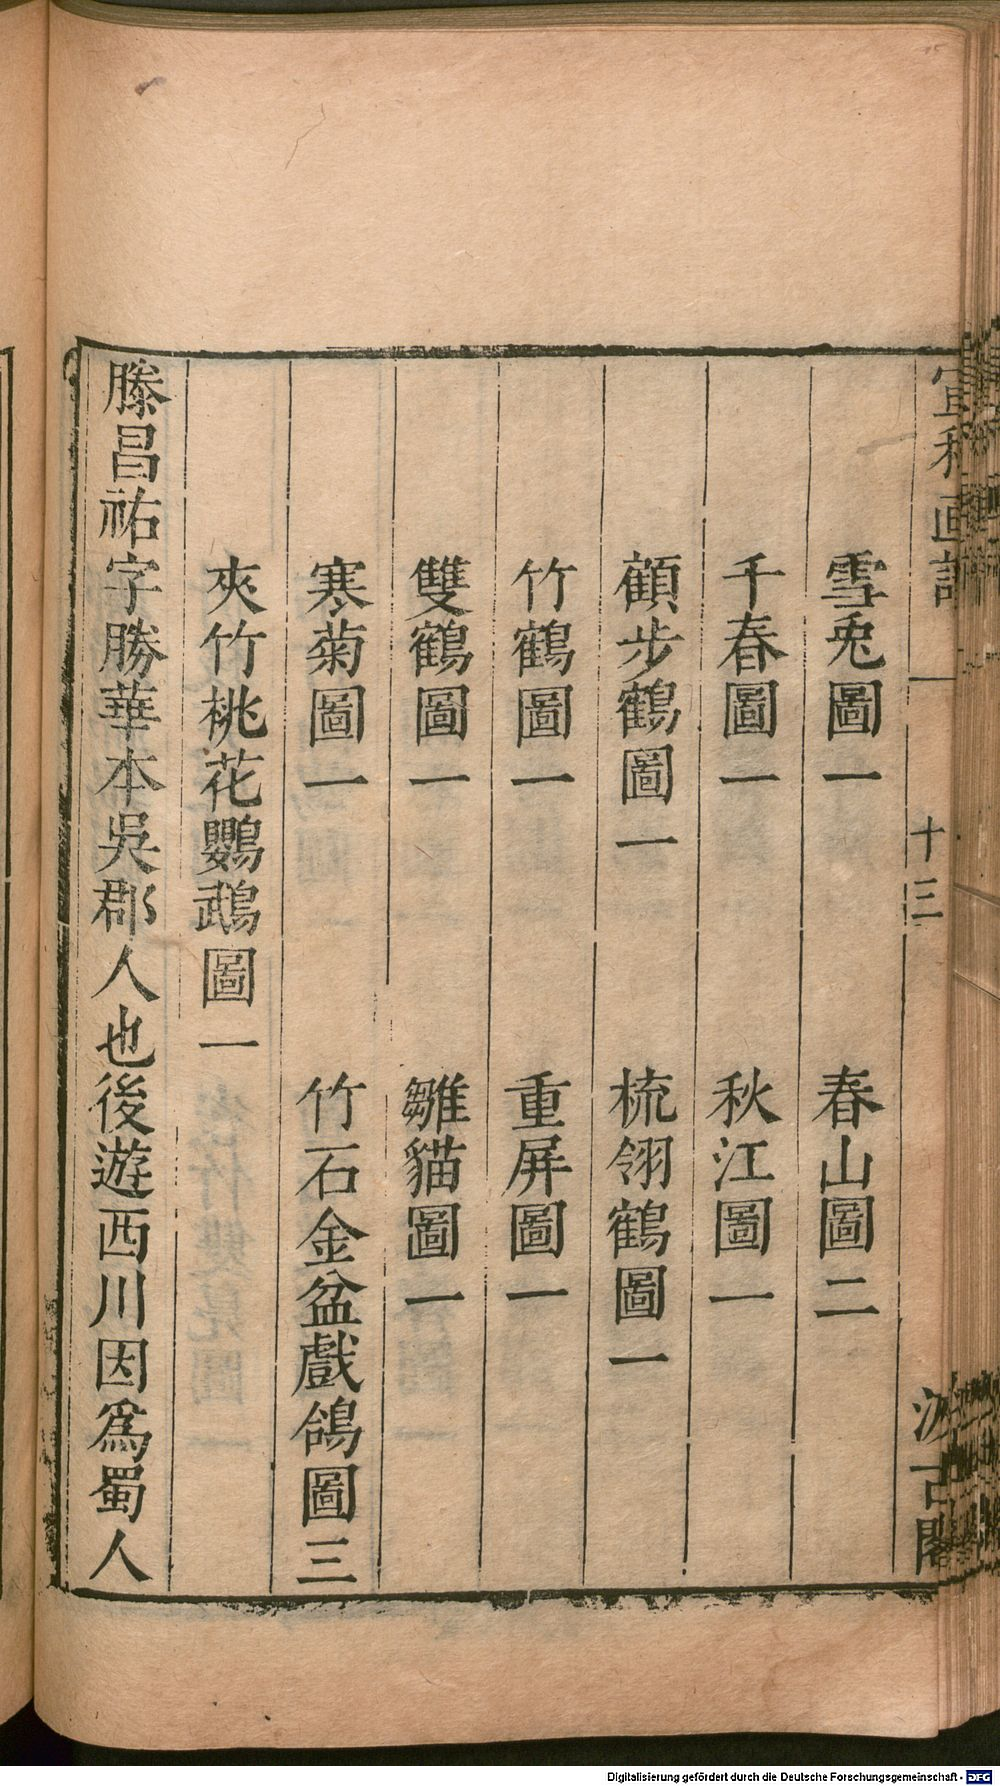 宣和画譜 十三 汲古閣
雪兎圖一 春山圖二
千春圖一 秋江圖一
顧步鶴圖一 梳翎鶴圖一
竹鶴圖一 重屏圖一
雙鶴圖一 雛貓圖一
寒菊圖一 竹石金盆戲鴿圖三
夾竹桃花鸚鵡圖一
滕昌祐字勝華本吳郡人也後遊西川因爲蜀人
Digitalisierung gefördert durch die Deutsche Forschungsgemeinschaft - DFG